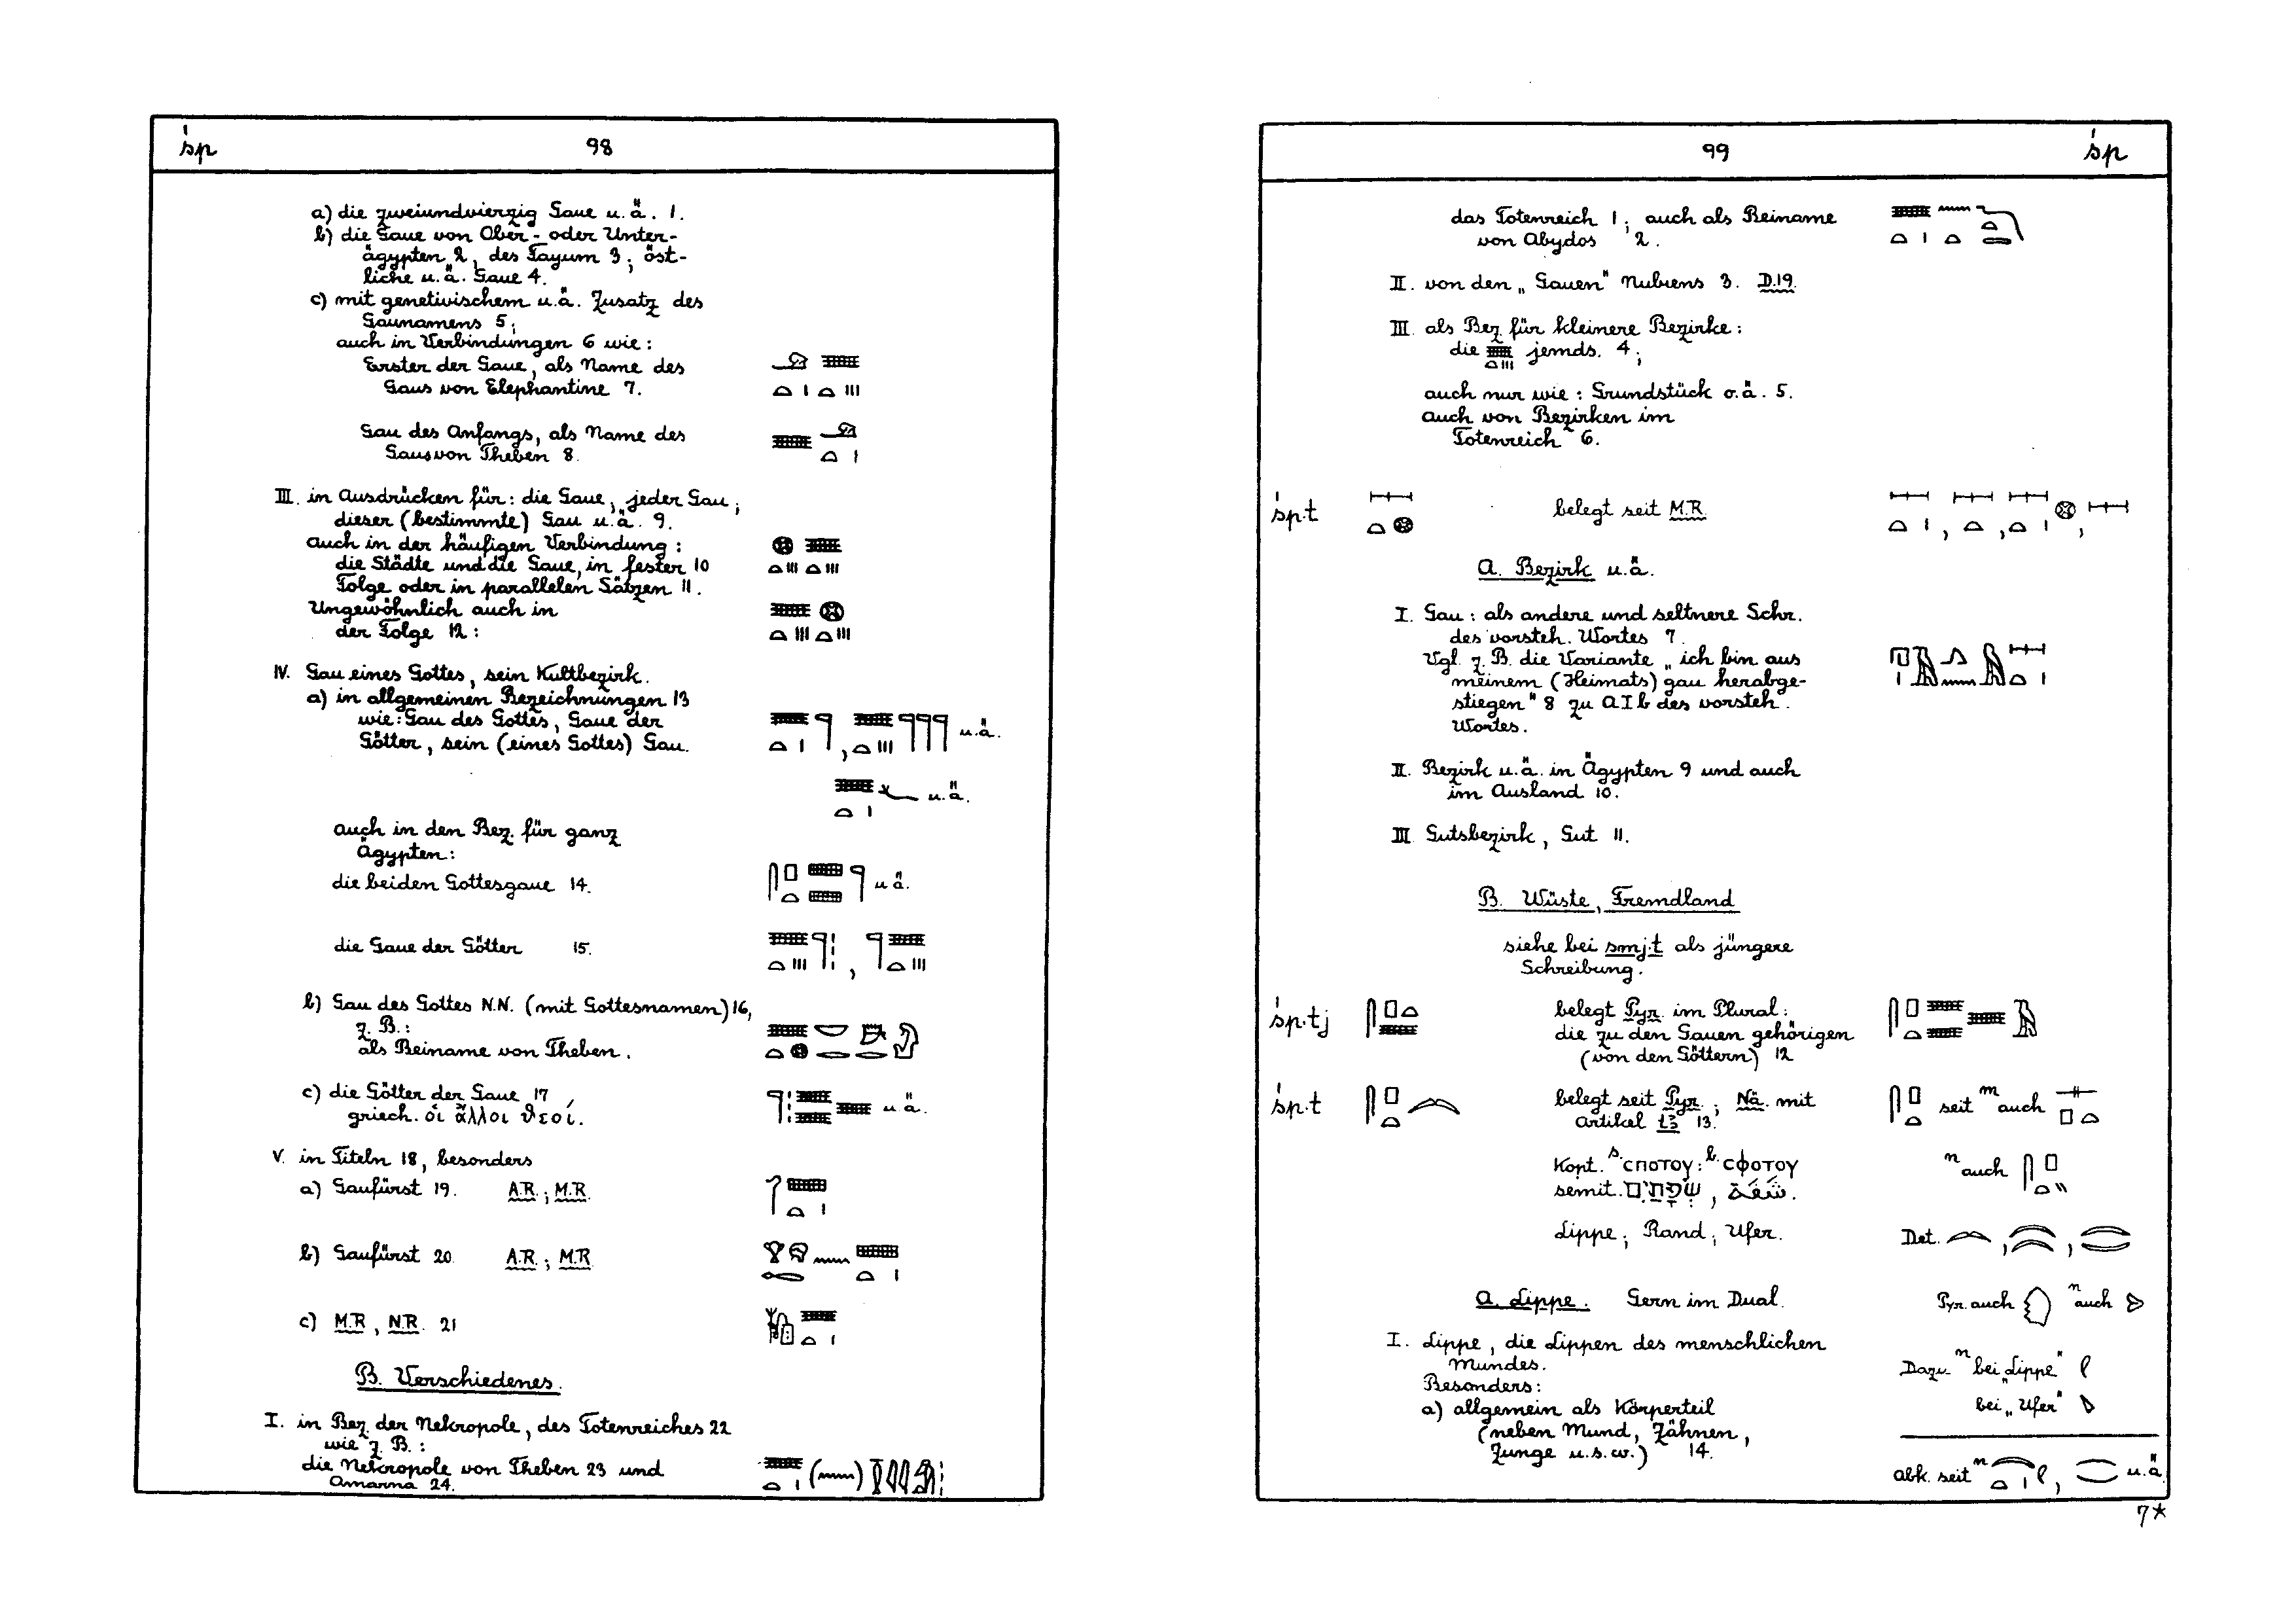 śp 98
a) die zweiundvierzig Gaue u.ä. 1.
b) die Gaue von Ober- oder Unter-
ägypten 2, des Fayum 3; öst-
liche u.ä. Gaue 4.
c) mit genetivischem u.ä. Zusatz des
Gaunamens 5;
auch in Verbindungen 6 wie:
Erster der Gaue, als Name des
Gaus von Elephantine 7.
Gau des Anfangs, als Name des
Gaus von Theben 8.
III. in Ausdrücken für: die Gaue, jeder Gau;
dieser (bestimmte) Gau u.ä. 9.
auch in der häufigen Verbindung:
die Städte und die Gaue, in fester 10
Folge oder in parallelen Sätzen 11.
Ungewöhnlich auch in
der Folge 12:
IV. Gau eines Gottes, sein Kultbezirk.
a) in allgemeinen Bezeichnungen 13
wie: Gau des Gottes, Gaue der
Götter, sein (eines Gottes) Gau.
, u.ä.
u.ä.
auch in den Bez. für ganz
Ägypten:
die beiden Gottesgaue 14. u.ä.
die Gaue der Götter 15. ,
b) Gau des Gottes N.N. (mit Gottesnamen) 16,
z. B.:
als Beiname von Theben.
c) die Götter der Gaue 17 u.ä.
griech. οἱ ἄλλοι θεοί.
V. in Titeln 18, besonders
a) Gaufürst 19. A.R.; M.R.
b) Gaufürst 20. A.R.; M.R.
c) M.R., N.R. 21
B. Verschiedenes.
I. in Bez. der Nekropole, des Totenreiches 22
wie z. B.:
die Nekropole von Theben 23 und
Amarna 24.
99 śp
das Totenreich 1; auch als Beiname
von Abydos 2.
II. von den „Gauen" Nubiens 3. D.19.
III. als Bez. für kleinere Bezirke:
die jemds. 4;
auch nur wie: Grundstück o.ä. 5.
auch von Bezirken im
Totenreich 6.
śp.t belegt seit M.R. , , ,
A. Bezirk u.ä.
I. Gau: als andere und seltnere Schr.
des vorsteh. Wortes 7.
Vgl. z. B. die Variante „ich bin aus
meinem (Heimats)gau herabge-
stiegen" 8 zu A I b des vorsteh.
Wortes.
II. Bezirk u.ä. in Ägypten 9 und auch
im Ausland 10.
III. Gutsbezirk, Gut 11.
B. Wüste, Fremdland
siehe bei smj.t als jüngere
Schreibung.
śp.tj belegt Pyr. im Plural:
die zu den Gauen gehörigen
(von den Göttern) 12
śp.t belegt seit Pyr.; Nä. mit
Artikel t3 13. seit m auch
Kopt. S. ⲥⲡⲟⲧⲟⲩ: b. ⲥⲫⲟⲧⲟⲩ n auch
semit. שְׂפָתַיִם, شَفَة.
Lippe; Rand; Ufer. Det. , ,
A. Lippe. Gern im Dual. Pyr. auch n auch
I. Lippe, die Lippen des menschlichen
Mundes. Dazu n bei „Lippe"
Besonders:
a) allgemein als Körperteil bei „Ufer"
(neben Mund, Zähnen,
Zunge u.s.w.) 14.
abk. seit n , u.ä.
7*